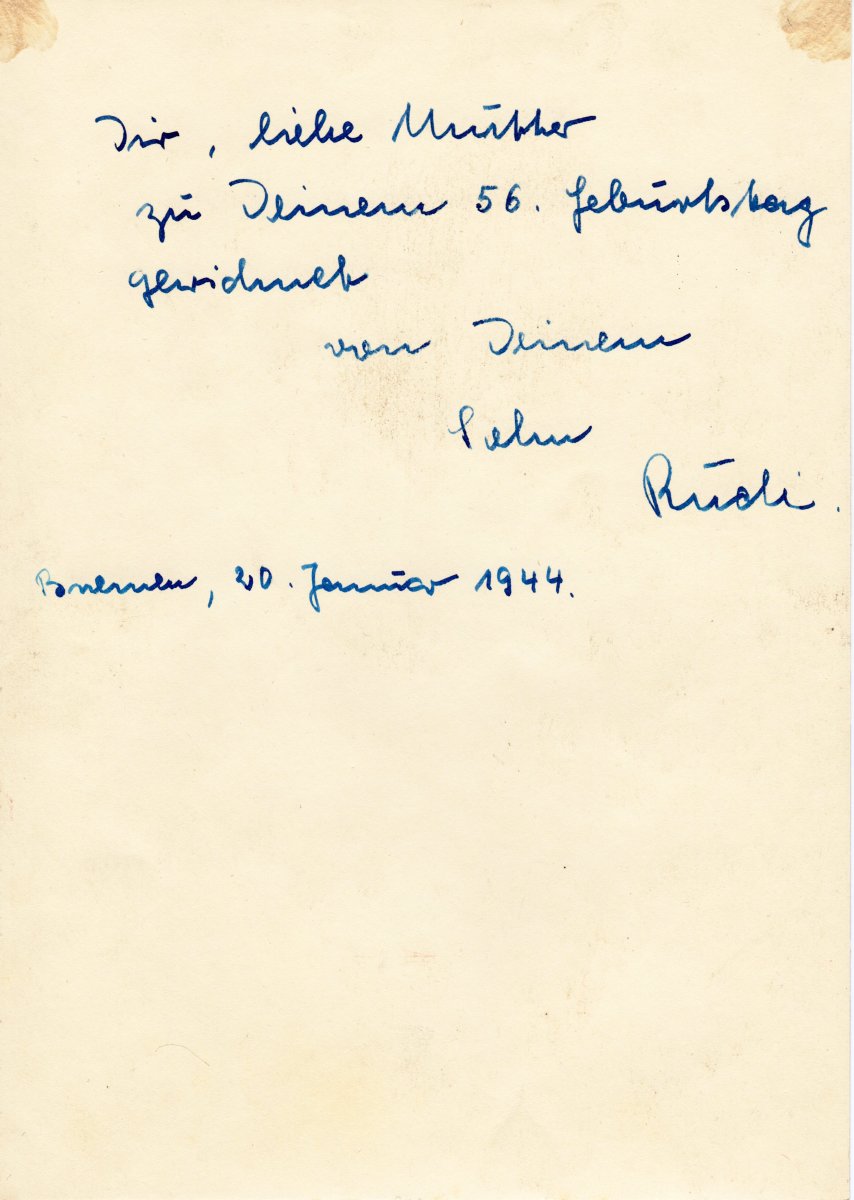 Dir, liebe Mutter
zu Deinem 56. Geburtstag
gewidmet
von Deinem
Sohn
Rudi.
Bremen, 20. Januar 1944.